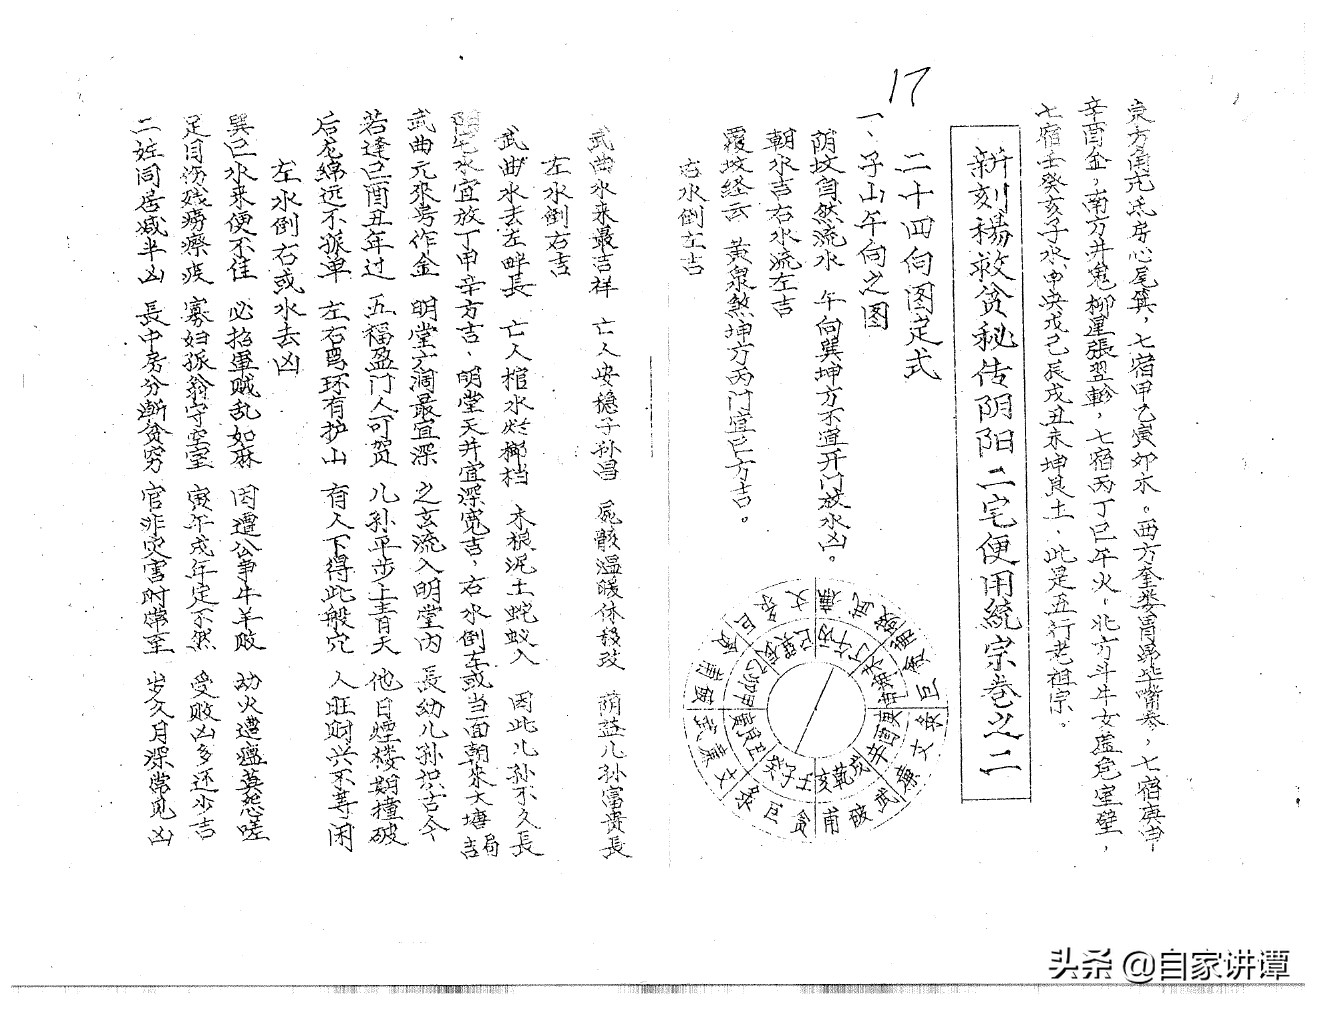 17
東方角亢氐房心尾箕，七宿甲乙寅卯木。西方奎娄胃昴毕嘴参，七宿庚申
辛酉金，南方井鬼柳星張翌軫，七宿丙丁巳午火，北方斗牛女虚危室壁，
七宿壬癸亥子水，中央戊己辰戌丑未坤艮土，此是五行老祖宗。
新刻楊救贫秘传阴阳二宅便用統宗卷之二
二十四向图定式
一、子山午向之图
荫坟自然流水 午向巽坤方不宜开门放水凶。
朝水吉右水流左吉
覆坟经云 黄泉煞坤方丙门宜巳方吉。
右水倒左吉
武曲水来最吉祥 亡人安稳子孙昌 屍骸温暖休移改 荫益儿孙富貴長
左水倒右吉
武曲水去左畔長 亡人棺水烂椰档 木根泥土蛇蚁入 因此儿孙不久長
阴宅水宜放丁申辛方吉，明堂天井宜深宽吉，右水倒左或当面朝来大塘局吉
武曲元來号作金 明堂六洞最宜深 之玄流入明堂内 長幼儿孙识古今
若逢巳酉丑年过 五福盈门人可贺 儿孙平步上青天 他日煙楼期撞破
后龙綿远不孤单 左右弯环有护山 有人下得此般穴 人旺财兴不等闲
左水倒右或水去凶
巽巳水来便不佳 必招軍贼乱如麻 因遭公事牛羊败 劫火遭瘟莫怨嗟
足目伤残痨瘵疲 寡妇孤翁守空室 寅午戌年定不然 受败凶多还少吉
二姓同居减半凶 長中房分渐贫穷 官非灾害时常至 岁久月深常见凶
壬子癸丑艮寅甲卯乙辰巽巳丙午丁未坤申庚酉辛戌乾亥
头条 @自家讲谭